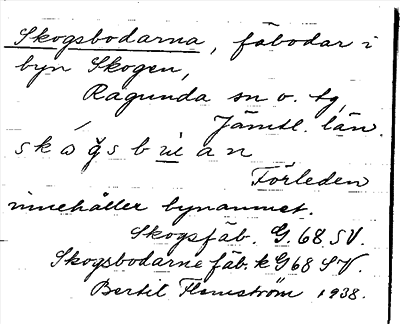 Skogsbodarna, fäbodar i
byn Skogen,
Ragunda sn o. tg,
Jämtl. län.
Förleden
innehåller bynamnet.
Skogsfäb. G. 68 SV.
Skogsbodarne fäb. k G 68 SV.
Bertil Flemström 1938.